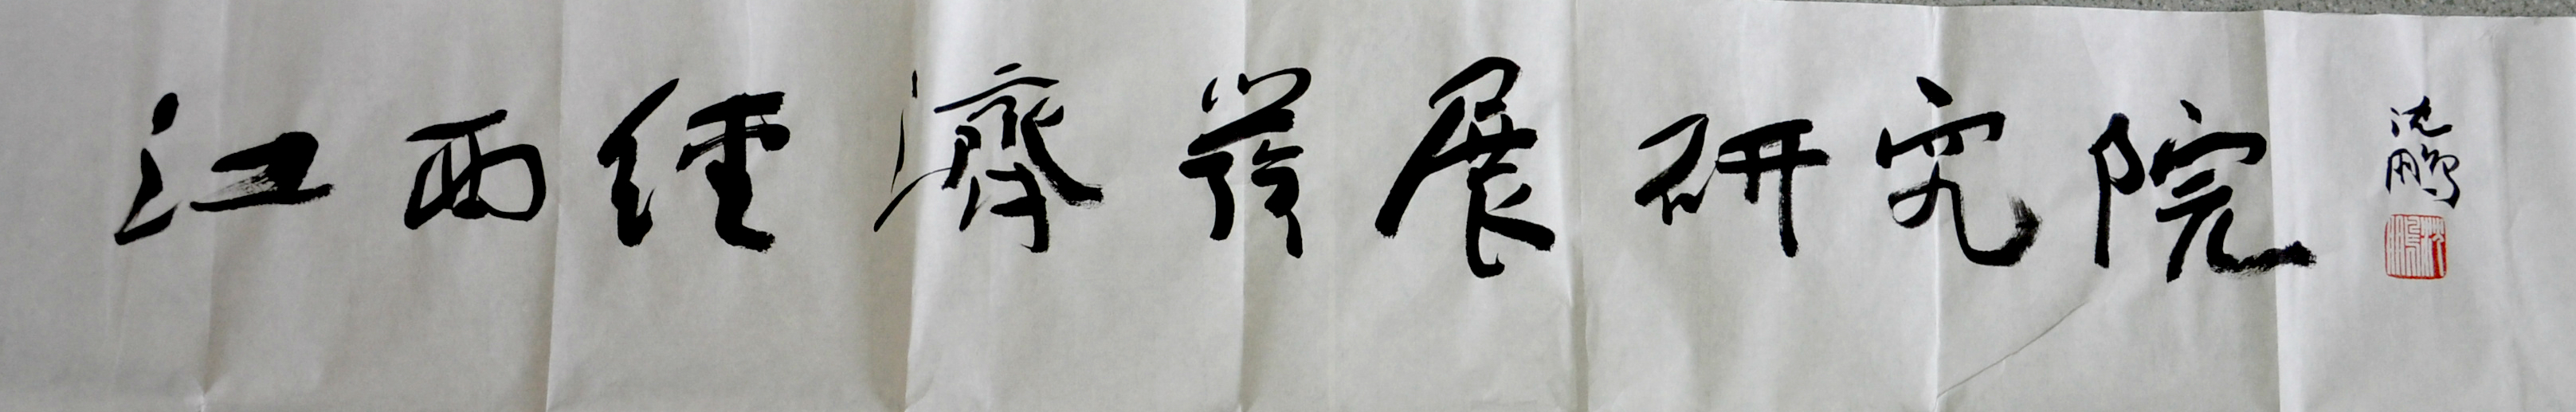 江西經濟發展研究院
沈鵬